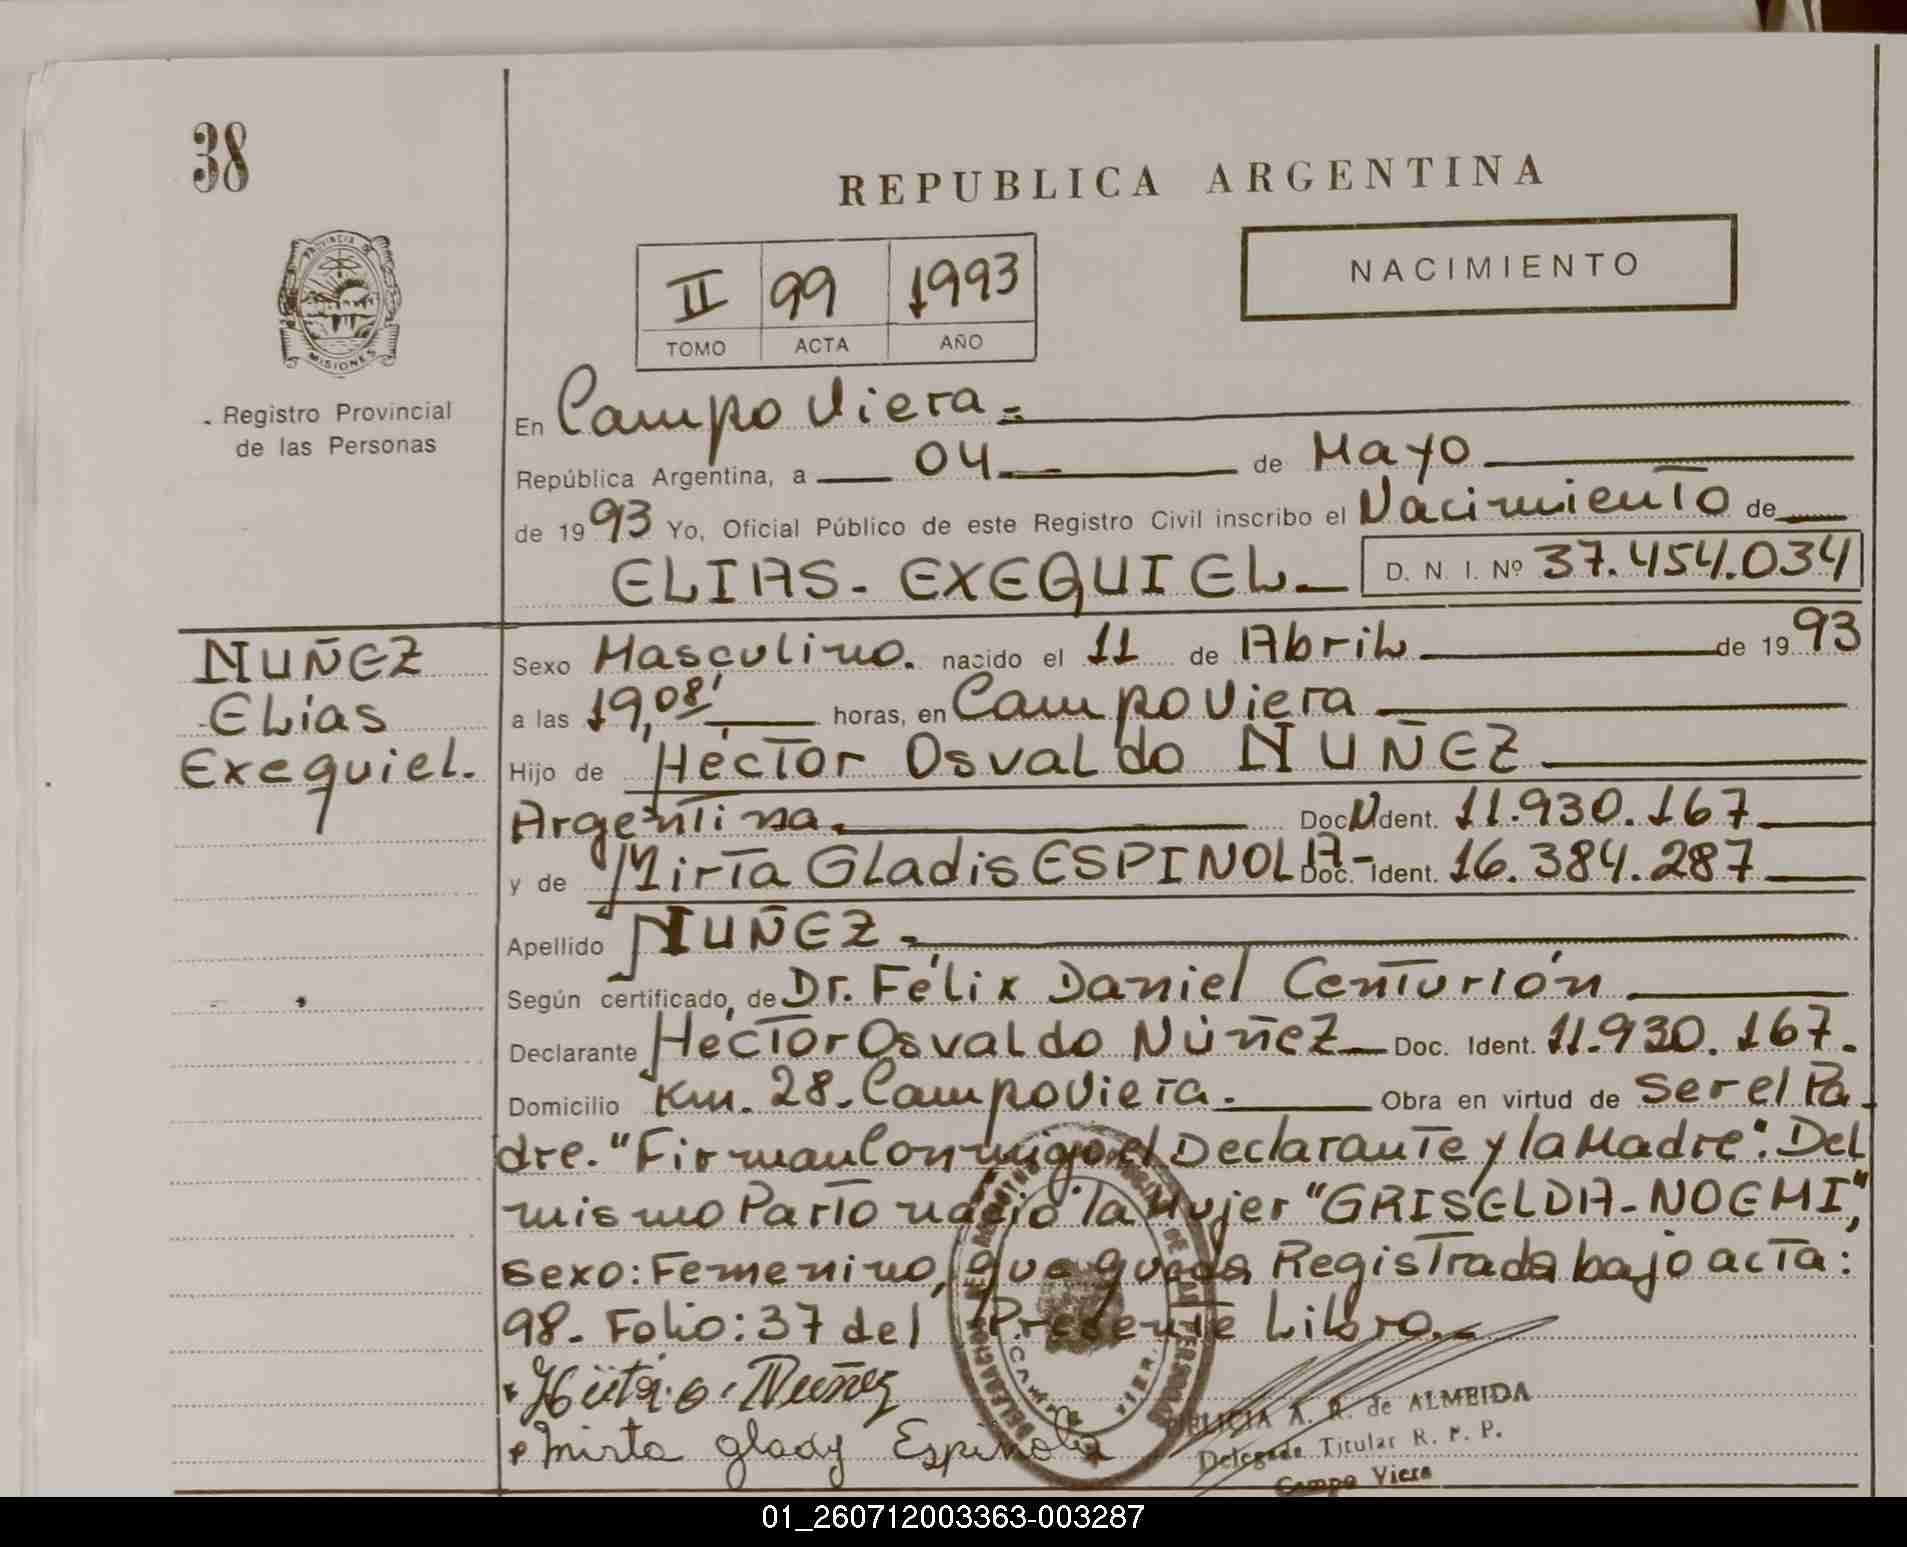 38
REPUBLICA ARGENTINA
PROVINCIA DE
MISIONES
Registro Provincial
de las Personas
II 99 1993
TOMO ACTA AÑO
NACIMIENTO
En Campo Viera.=
República Argentina, a 04 de Mayo
de 1993 Yo, Oficial Público de este Registro Civil inscribo el Nacimiento de
ELIAS - EXEQUIEL D. N. I. Nº 37.454.034
NUÑEZ
Elias
Exequiel.
Sexo Masculino. nacido el 11 de Abril de 1993
a las 19,08' horas, en Campo Viera
Hijo de Héctor Osvaldo NUÑEZ
Argentina. Doc. Ident. 11.930.167
y de Mirta Gladis ESPINOLA- Doc. Ident. 16.384.287
Apellido NUÑEZ.
Según certificado, de Dr. Félix Daniel Centurión
Declarante Héctor Osvaldo Núñez Doc. Ident. 11.930.167.
Domicilio Km. 28. Campo Viera. Obra en virtud de Ser el Pa
dre. "Firman Conmigo el Declarante y la Madre": Del
mismo Parto nació la Mujer "GRISELDA-NOEMI",
sexo: Femenino, que queda Registrada bajo acta:
98. Folio: 37 del Presente Libro.
Nuñez
Mirta glady Espinola
A. R. de ALMEIDA
Delegada Titular R. P. P.
Campo Viera
01_260712003363-003287